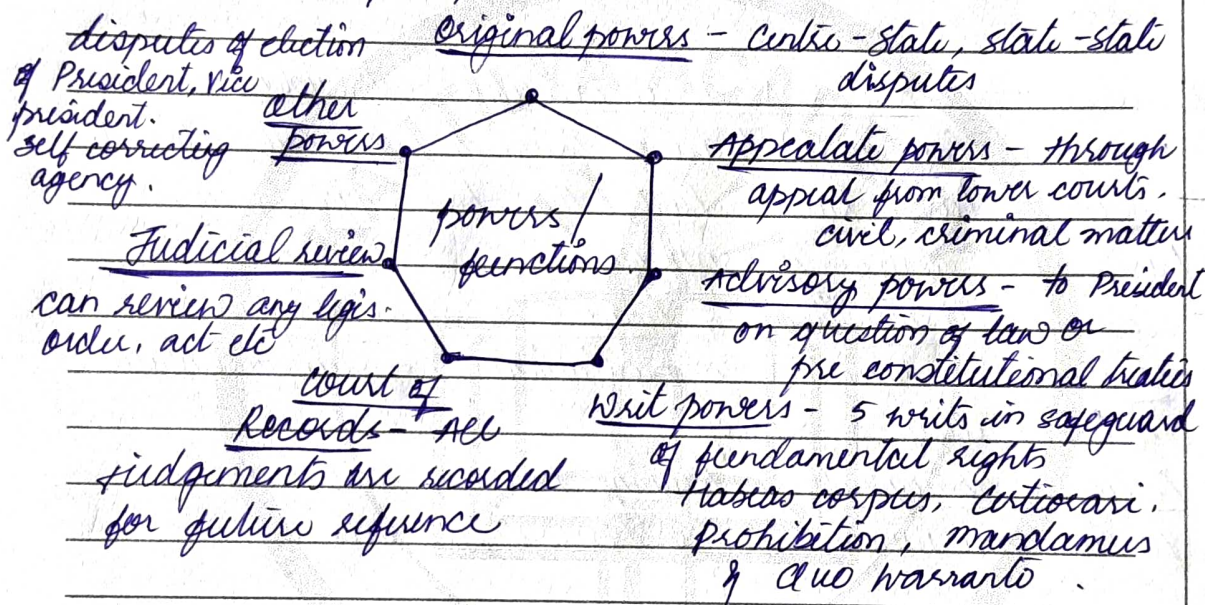 Original powers - Centre-State, state-state
disputes
Appealate powers - through
appeal from lower courts.
civil, criminal matters
Advisory powers - to President
on question of law or
pre constitutional treaties
Writ powers - 5 writs in safeguard
of fundamental rights
Habeas corpus, Certiorari.
Prohibition, mandamus
& Quo warranto.
Court of
Records - All
judgements are recorded
for future reference
Judicial review
can review any legis.
order, act etc
other
powers
disputes of election
of President, Vice
president.
self correcting
agency.
powers/
functions.